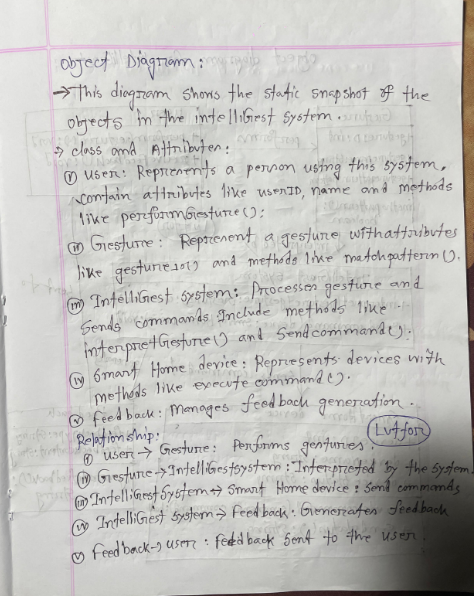 Object Diagram:
→ This diagram shows the static snapshot of the
objects in the intelliGest system.
→ class and Attributes:
(i) User: Represents a person using this system,
contain attributes like userID, name and methods
like performGesture();
(ii) Gesture: Represent a gesture with attributes
like and methods like matchpattern().
(iii) IntelliGest System: Processes gesture and
Sends commands Include methods like
interpretGesture() and Sendcommand().
(iv) Smart Home device: Represents devices with
methods like execute command().
(v) Feedback: Manages feedback generation.
Relationship:
(i) user → Gesture: Performs gestures.
(ii) Gesture → IntelliGestsystem: Interpreted by the system
(iii) IntelliGestSystem ↔ Smart Home device: Send commands
(iv) IntelliGest System → Feedback: Generates feedback
(v) Feedback → user: feedback Sent to the user.